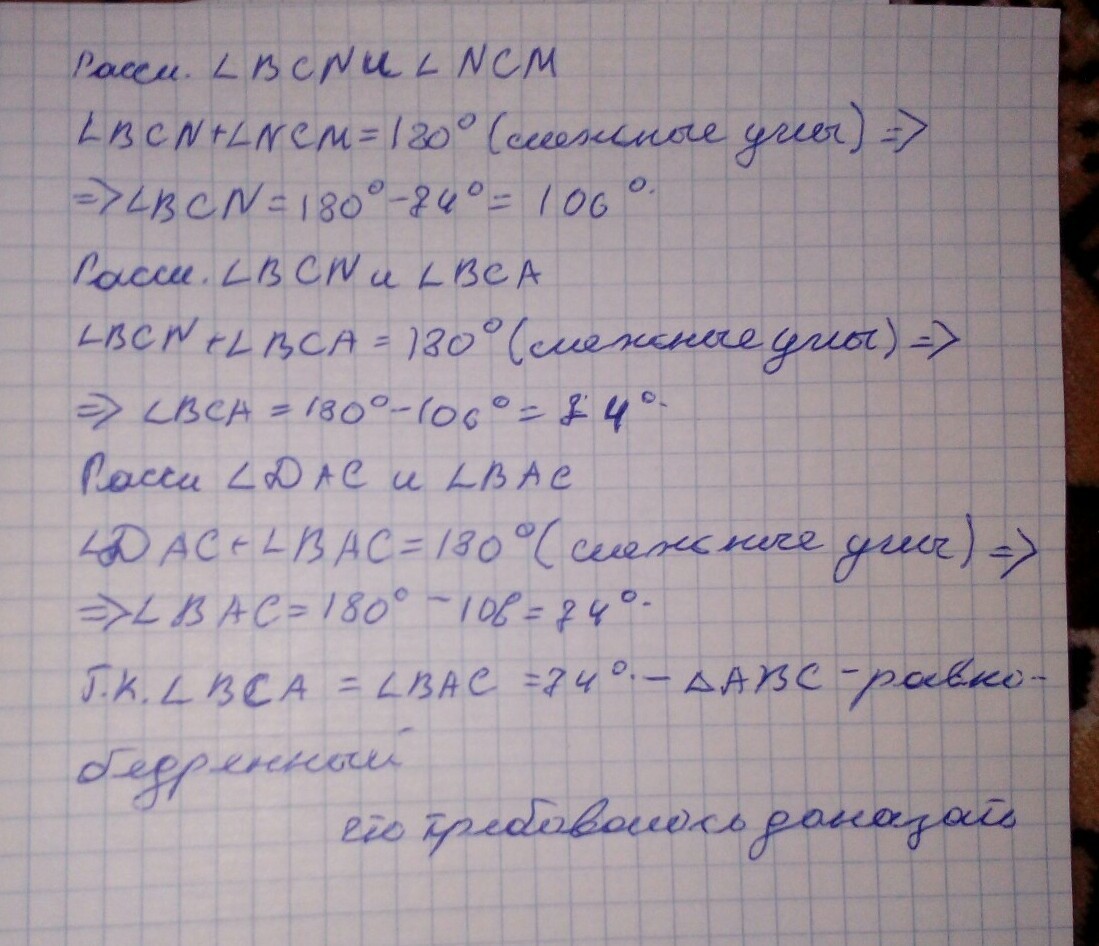 Рассм. ∠BCN и ∠NCM
∠BCN+∠NCM=180° (смежные углы) =>
=>∠BCN=180°-74°= 106°.
Рассм. ∠BCN и ∠BCA
∠BCN+∠BCA=180° (смежные углы) =>
=> ∠BCA=180°-106°=74°.
Рассм ∠DAC и ∠BAC
∠DAC+∠BAC=180° (смежные углы) =>
=>∠BAC=180°-106=74°.
Т.к. ∠BCA = ∠BAC =74°.- △ABC -равно-
бедренный
что требовалось доказать